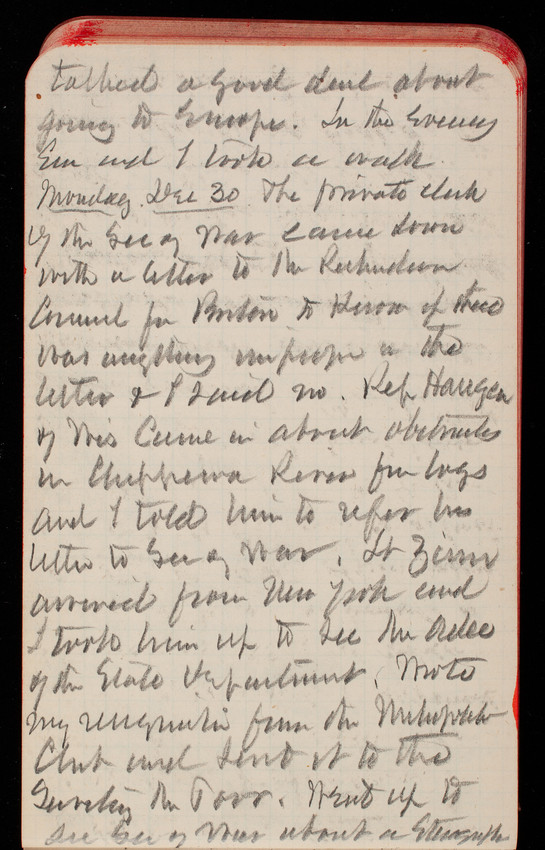 talked a good deal about
going to Europe. In the Evening
Em and I took a walk
Monday. Dec 30 The private clerk
of the Sec of War came down
with a letter to the
Council for Boston to Know if there
was anything improper in the
letter & I said no. Rep Haugen
of Wis Came in about obstructions
in Chippewa River for logs
and I told him to refer his
letter to Sec of War. Lt Zinn
arrived from New York and
I took him up to see the
of the State Department. Wrote
my resignation from the Metropolitan
Club and sent it to the
Went up to
see Sec of War about a